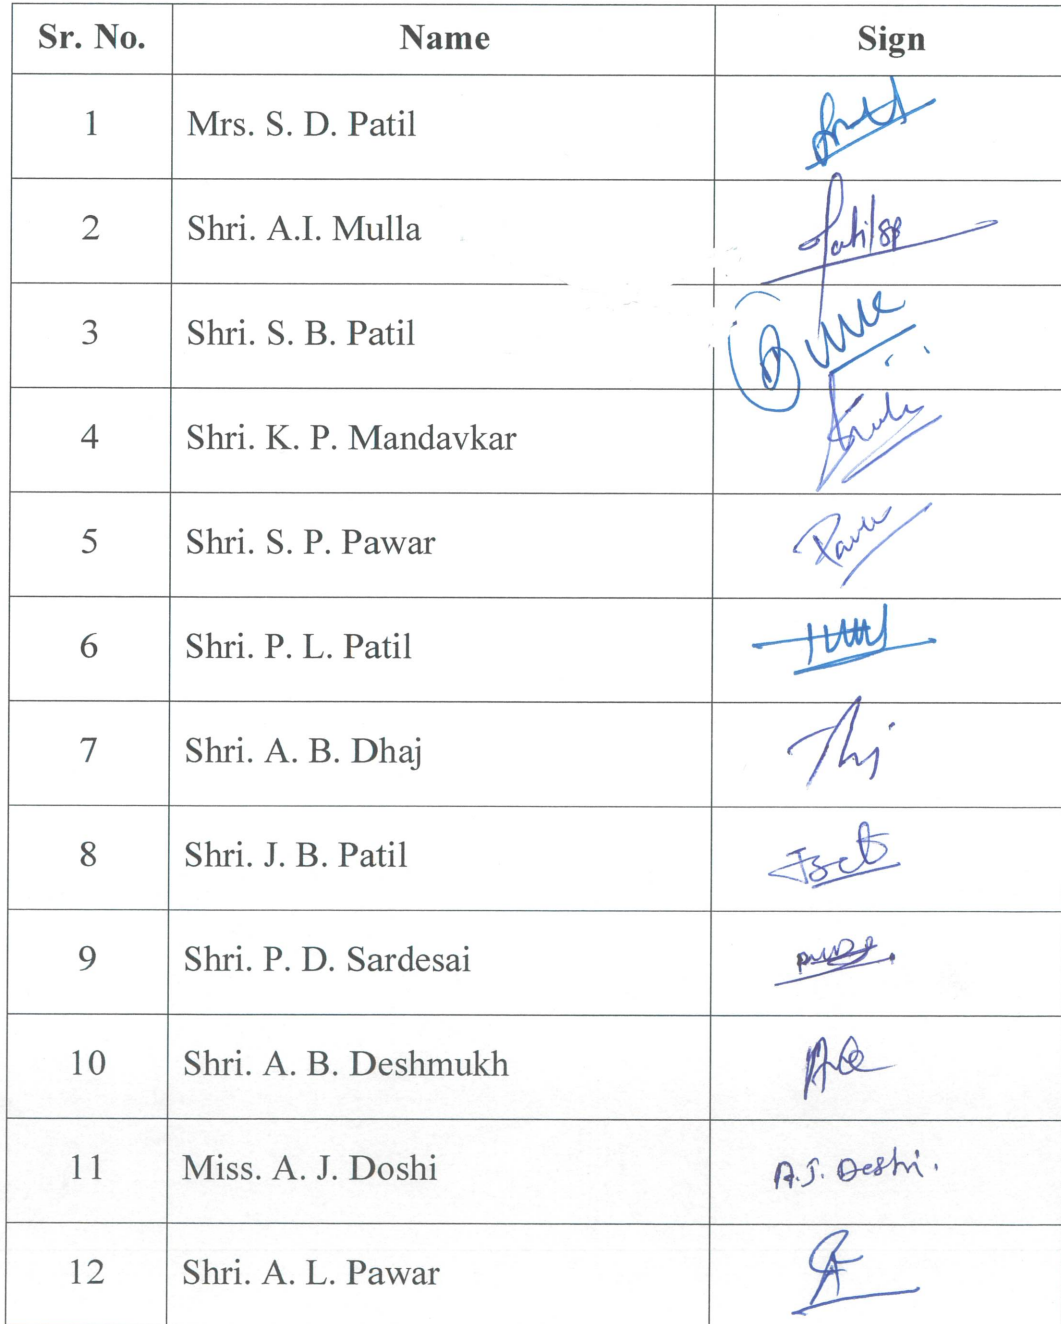 Sr. No. Name Sign
1 Mrs. S. D. Patil
2 Shri. A.I. Mulla
3 Shri. S. B. Patil
4 Shri. K. P. Mandavkar
5 Shri. S. P. Pawar
6 Shri. P. L. Patil
7 Shri. A. B. Dhaj
8 Shri. J. B. Patil
9 Shri. P. D. Sardesai
10 Shri. A. B. Deshmukh
11 Miss. A. J. Doshi A.J. Doshi.
12 Shri. A. L. Pawar